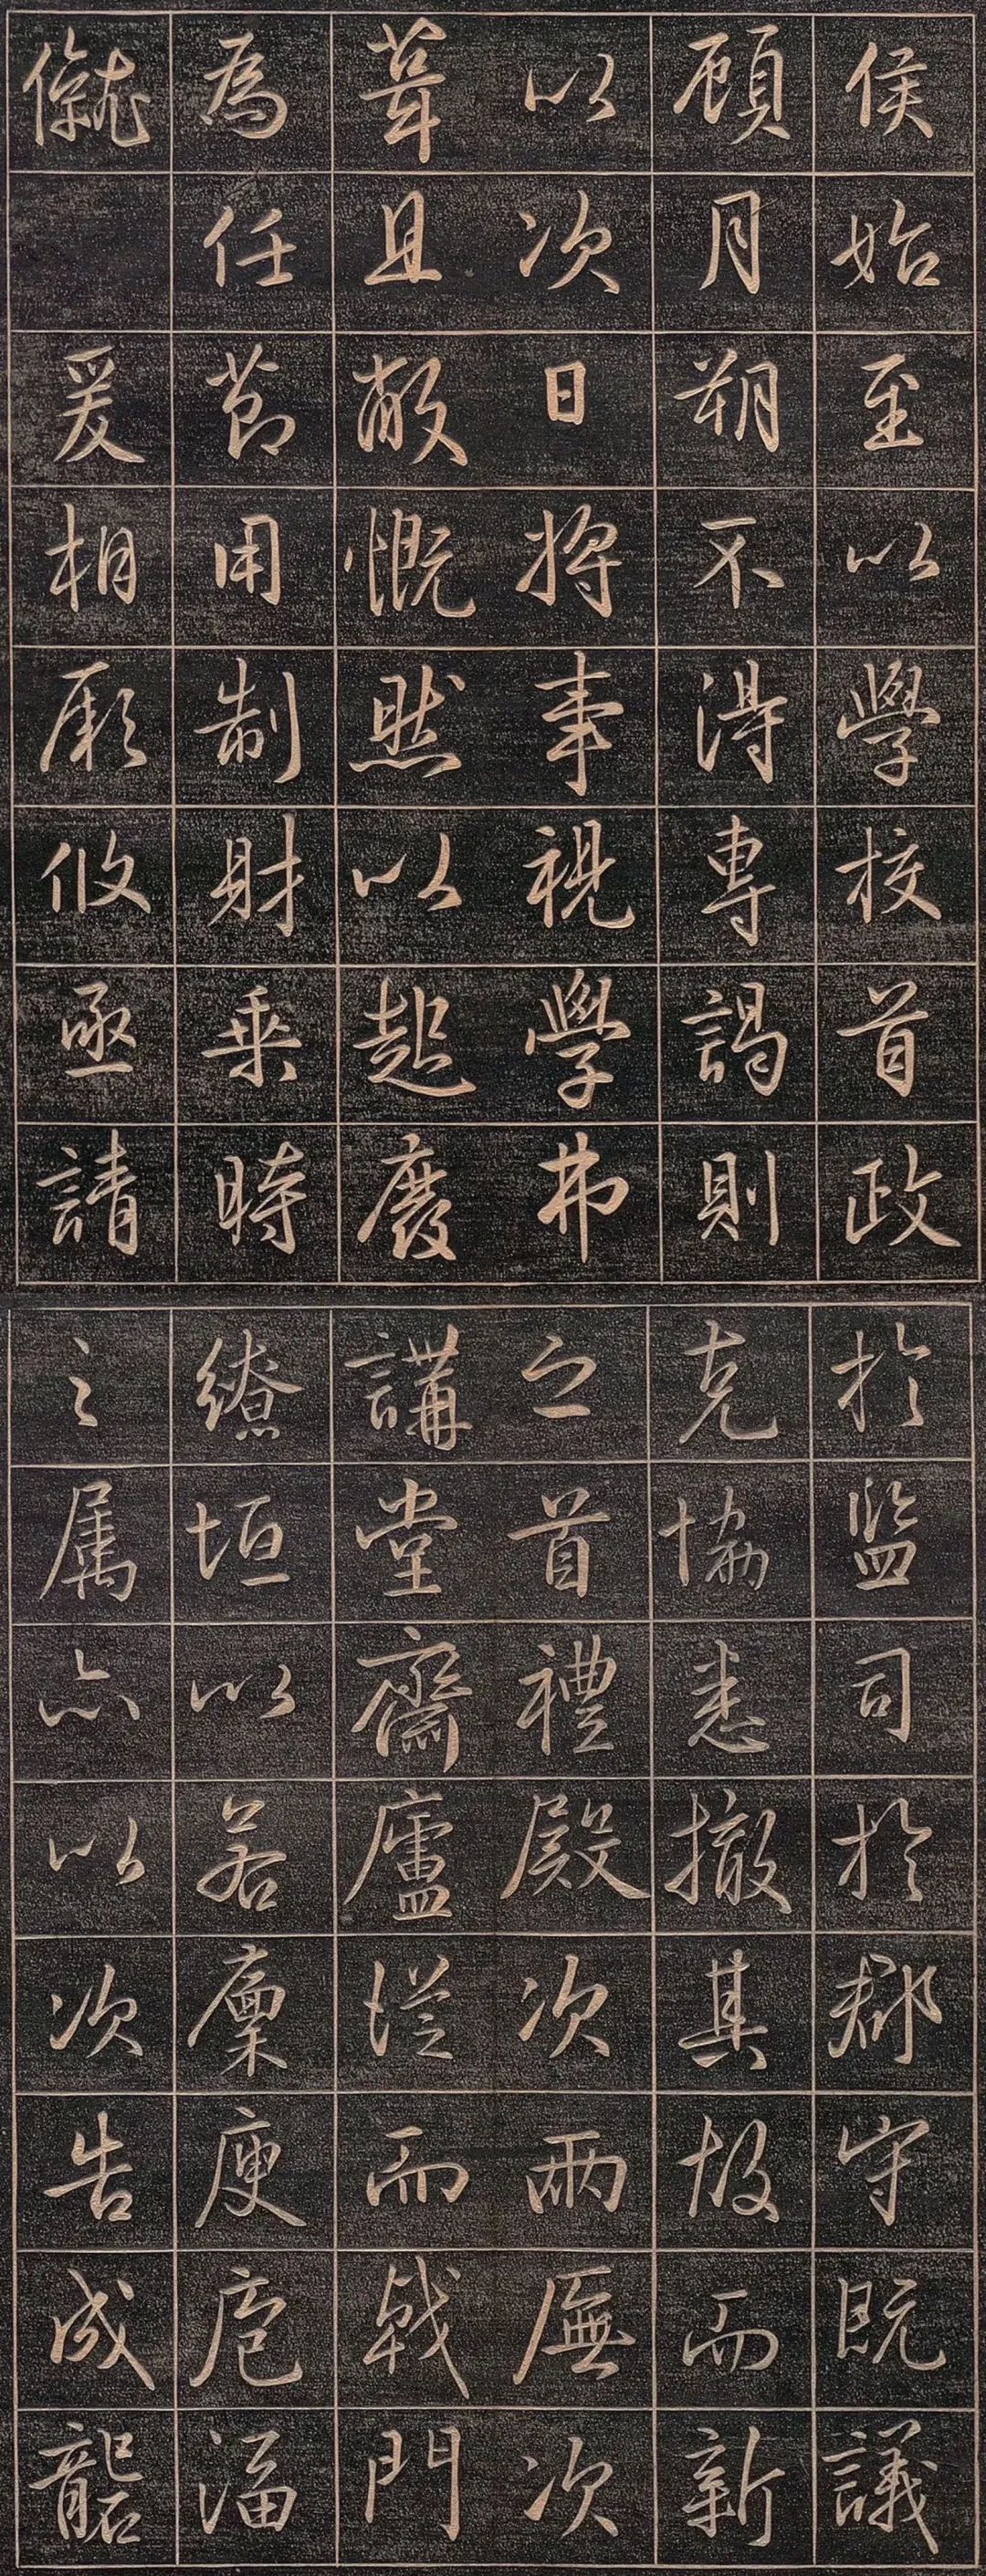 侯始至以學校首政
顧月朔不得專謁則
以次日將事視學弗
葺且敝慨然以起廢
為任節用制財乗時
僦 爰相厥攸亟請
於監司於郡守既議
克協悉撤其故而新
之首禮殿次兩廡次
講堂齋廬從而戟門
繚垣以若廩庾庖湢
之属亦以次告成礱